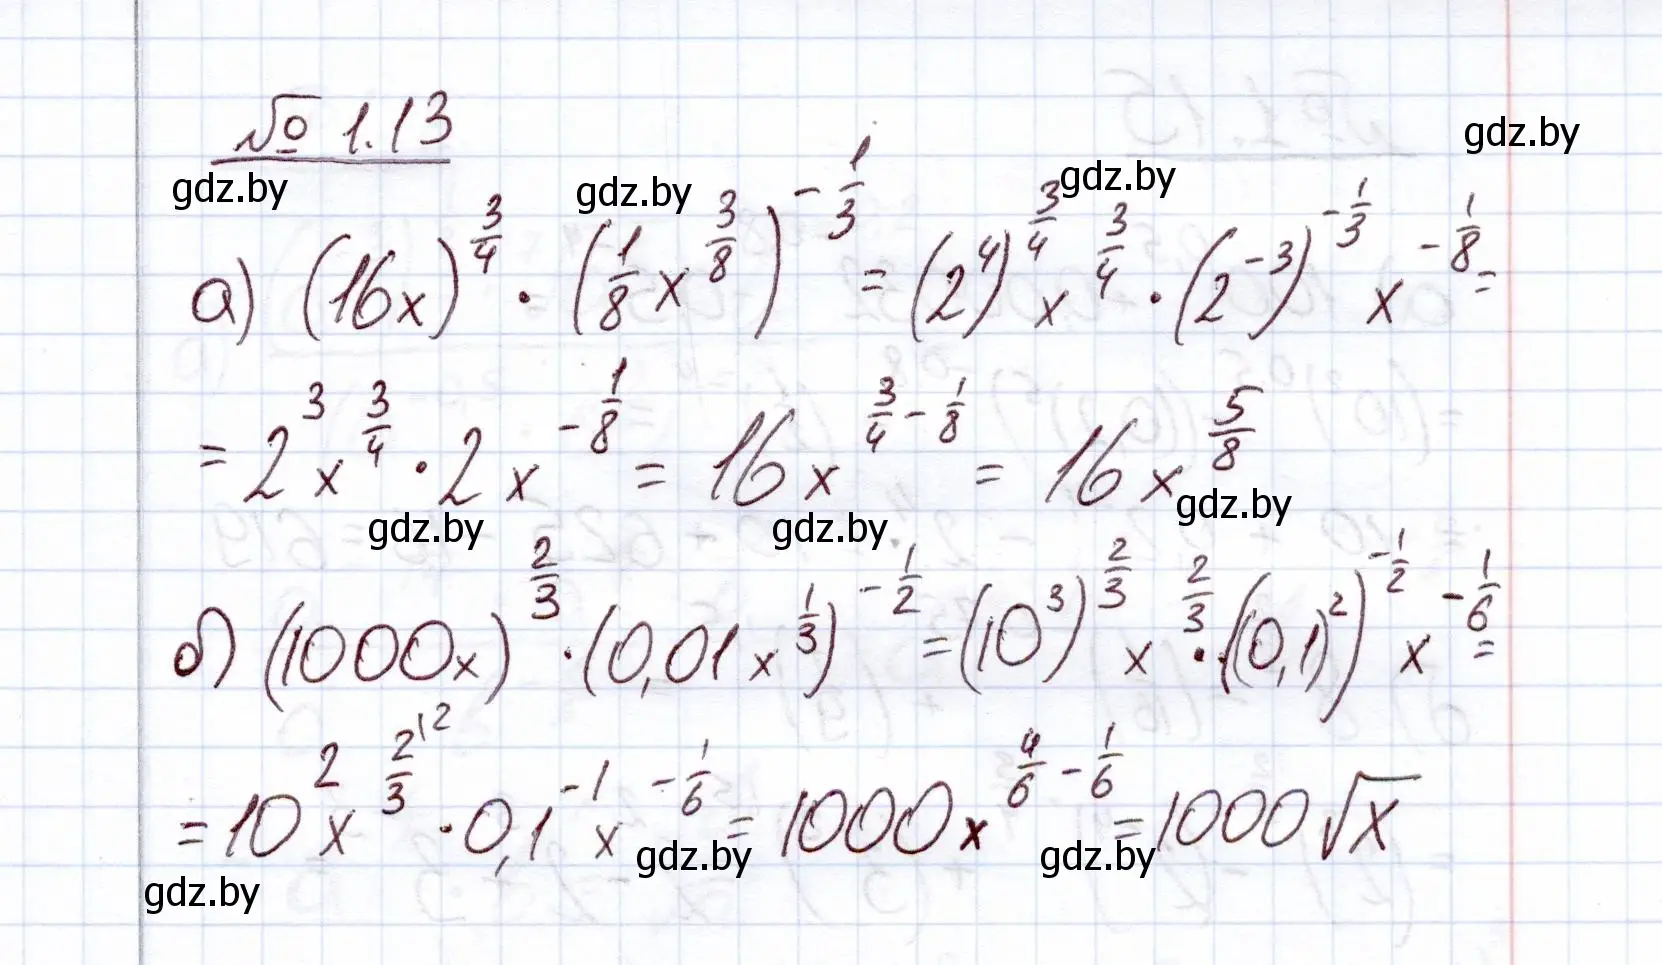 № 1.13
gdz.by
gdz.by gdz.by gdz.by
а) (16x)^(3/4) · (1/8 x^(3/8))^(-1/3) = (2^4)^(3/4) x^(3/4) · (2^(-3))^(-1/3) x^(-1/8) =
= 2^3 x^(3/4) · 2 x^(-1/8) = 16 x^(3/4 - 1/8) = 16 x^(5/8)
gdz.by gdz.by gdz.by
б) (1000x)^(2/3) · (0,01 x^(1/3))^(-1/2) = (10^3)^(2/3) x^(2/3) · ((0,1)^2)^(-1/2) x^(-1/6) =
= 10^2 x^(2/3 \2) · 0,1^(-1) x^(-1/6) = 1000 x^(4/6 - 1/6) = 1000 √x
gdz.by gdz.by gdz.by